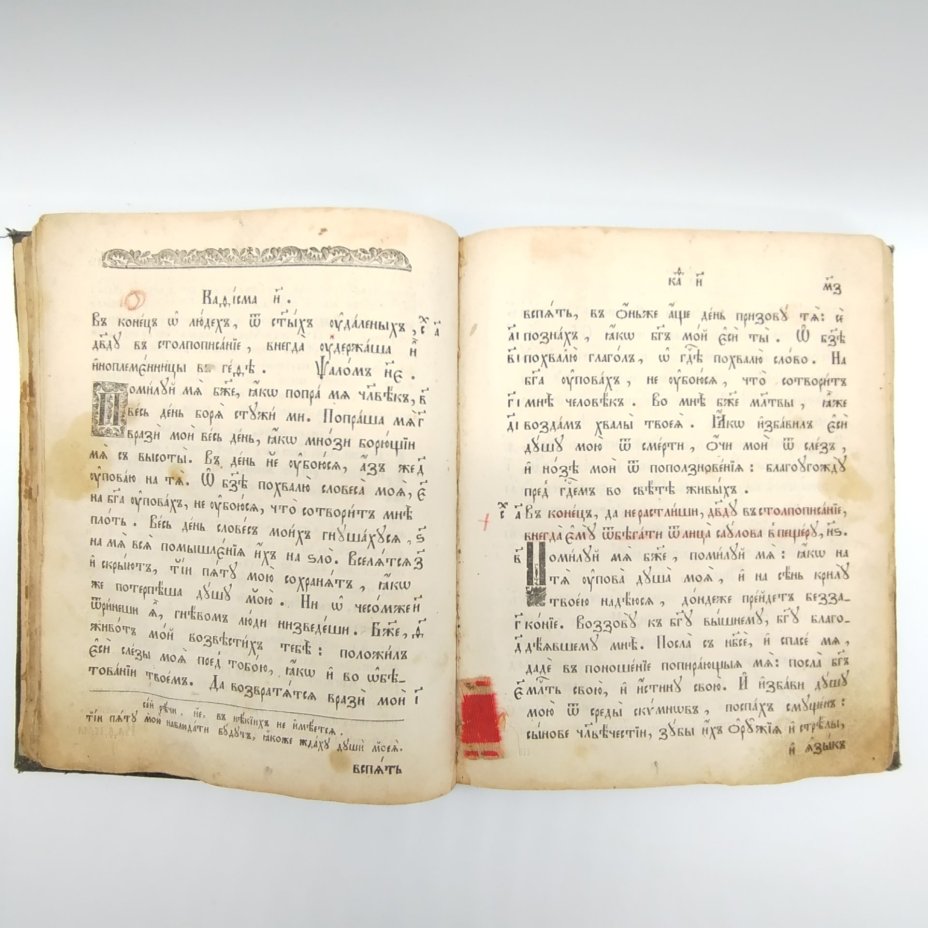 Каѳісма и҃ .
Въ коне́цъ ѡ҆ лю́дехъ , ѿ ст҃ы́хъ ᲂу҆дале́ныхъ , а҃
дв҃ду въ столпописа́нїе , внегда̀ ᲂу҆держа́ша и҆̀
и҆ноплеме́нницы въ ге́дѣ . Ѱало́мъ н҃е .
Поми́луй мѧ̀ бж҃е , ꙗ҆́кѡ попра́ мѧ чл҃вѣ́къ , в҃
ве́сь де́нь борѧ̀ стужи́ ми . Попра́ша мѧ̀ г҃
вразѝ моѝ ве́сь де́нь , ꙗ҆́кѡ мно́зи борю́щїи
мѧ съ высоты̀ . Въ де́нь не ᲂу҆бою́сѧ , а҆́зъ же д҃
ᲂу҆пова́ю на тѧ̀ . Ѡ҆ бз҃ѣ похвалю̀ словеса̀ моѧ̀ , є҃
на бг҃а ᲂу҆пова́хъ , не ᲂу҆бою́сѧ , что̀ сотвори́тъ мнѣ̀
пло́ть . Ве́сь де́нь слове́съ мои́хъ гнꙋша́хꙋсѧ , ѕ҃
на мѧ̀ всѧ̀ помышле́нїѧ и҆́хъ на ѕло̀ . Вселѧ́тсѧ з҃
и҆ скры́ютъ , ті́и пѧ́тꙋ мою̀ сохранѧ́тъ , ꙗ҆́кѡ
же потерпѣ́ша дꙋ́шꙋ мою̀ . Ни ѡ҆ чесо́мже и҃
ѿри́неши ѧ҆̀ , гнѣ́вомъ лю́ди низведе́ши . Бж҃е , ѳ҃
живо́тъ мо́й возвѣсти́хъ тебѣ̀ : положи́лъ
є҆сѝ сле́зы моѧ̀ пред̾ тобо́ю , ꙗ҆́кѡ и҆ во ѡ҆бѣ-
това́нїи твое́мъ . Да возвратѧ́тсѧ вразѝ моѝ і҃
сїѝ рѣ́чи . не . въ нѣ́кїихъ не и҆мѣ́етсѧ .
ті́и пѧ́тꙋ мою̀ наблюда́ти бꙋ́дꙋтъ , ꙗ҆́коже жда́хꙋ дꙋшѝ моеѧ̀ .
вспѧ́ть
каѳ и҃ м҃з
вспѧ́ть , въ ѻ҆́ньже а҆́ще де́нь призовꙋ̀ тѧ̀ : сѐ
а҃і позна́хъ , ꙗ҆́кѡ бг҃ъ мо́й є҆сѝ ты̀ . Ѡ҆ бз҃ѣ
в҃і похвалю̀ глаго́лъ , ѡ҆ гд҃ѣ похвалю̀ сло́во . На
бг҃а ᲂу҆пова́хъ , не ᲂу҆бою́сѧ , что̀ сотвори́тъ
г҃і мнѣ̀ человѣ́къ . Во мнѣ̀ бж҃е мл҃твы , ꙗ҆́же
д҃і возда́мъ хвалы̀ твоеѧ̀ . Ꙗ҆́кѡ и҆зба́вилъ є҆сѝ
дꙋ́шꙋ мою̀ ѿ сме́рти , ѻ҆́чи моѝ ѿ сле́зъ ,
и҆ но́зѣ моѝ ѿ поползнове́нїѧ : благоꙋгождꙋ̀
пред̾ гд҃емъ во свѣ́тѣ живы́хъ .
а҃ Въ коне́цъ , да не растли́ши , дв҃дꙋ въ столпописа́нїе ,
внегда̀ є҆мꙋ̀ ѿбѣга́ти ѿ лица̀ саꙋ́лова в̾ пеще́рꙋ , н҃ѕ .
в҃ Поми́луй мѧ бж҃е , поми́луй мѧ̀ : ꙗ҆́кѡ на
тѧ̀ ᲂу҆пова̀ дꙋша̀ моѧ̀ , и҆ на сѣ́нь крилꙋ̀
твое́ю надѣ́юсѧ , до́ндеже пре́йдетъ безза-
г҃ ко́нїе . Воззовꙋ̀ къ бг҃ꙋ вы́шнемꙋ , бг҃ꙋ благо-
д҃ дѣ́ѧвшемꙋ мнѣ̀ . Посла̀ съ нб҃сѐ , и҆ спасе́ мѧ ,
дадѐ въ поноше́нїе попира́ющыѧ мѧ̀ : посла̀ бг҃ъ
є҃ мл҃ть свою̀ , и҆ и҆́стинꙋ свою̀ . И҆ и҆зба́ви дꙋ́шꙋ
мою̀ ѿ среды̀ ски́мнѡвъ , поспа́хъ смꙋще́нъ :
сы́нове чл҃вѣ́честїи , зꙋ́бы и҆́хъ ѻ҆рꙋ́жїѧ и҆ стрѣ́лы ,
и҆ ꙗ҆зы́къ